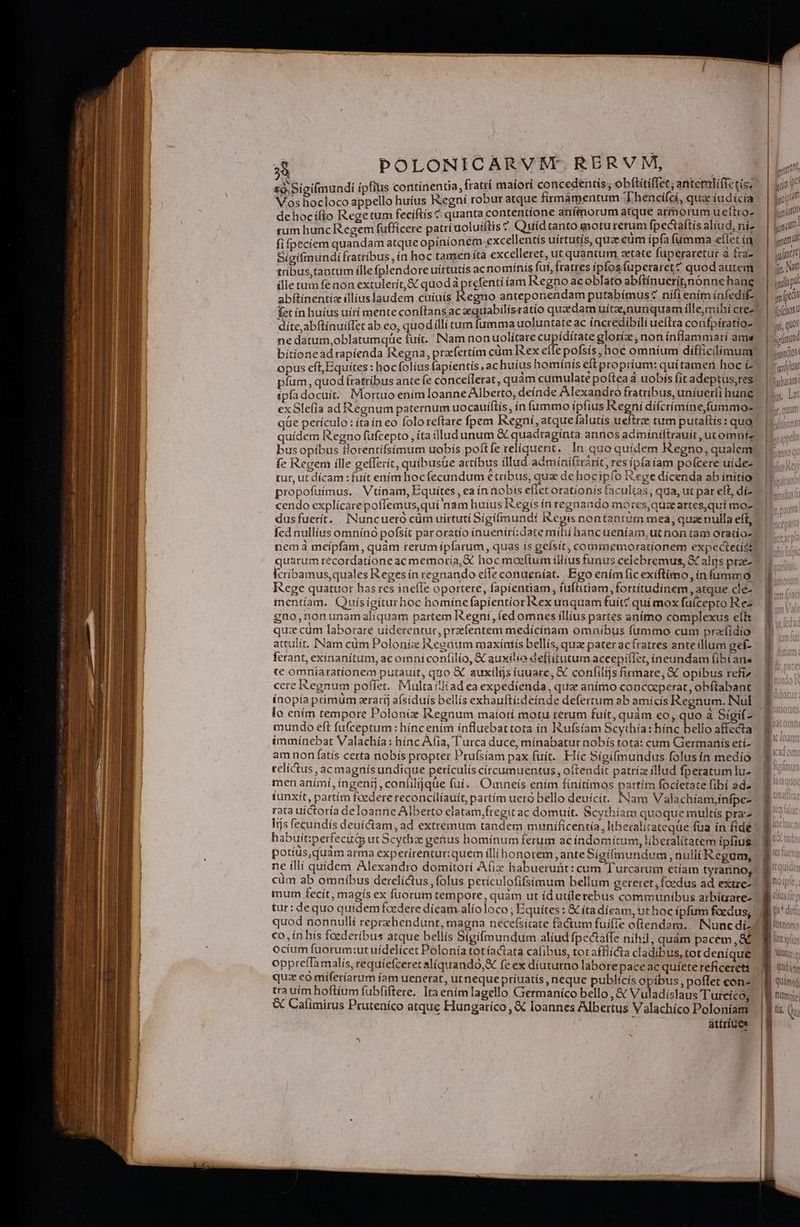 38 POLONICARVM RERVM,
Sigiſmundi ipſius continentia, fratri maiori concedentis, obſtitiſſet, antetuliſſetis.
Vos hoc loco appello huius Regni robur atque firmamentum Thenciſci, quæ iudicia
de hoc iſto Rege tum feciſtis? quanta contentione animorum atque armorum ueſtro-
rum hunc Regem ſufficere patri uoluiſtis? Quid tanto motu rerum ſpectaſtis aliud, ni-
ſi ſpeciem quandam atque opinionem excellentis uirtutis, quæ cùm ipſa ſumma eſſet in
Sigiſmundi fratribus, in hoc tamen ita excelleret, ut quantum ætate ſuperaretur à fra-
tribus, tantum ille ſplendore uirtutis ac nominis ſui, fratres ipſos ſuperaret? quod autem
ille tum ſe non extulerit, & quod à præſenti iam Regno ac oblato abſtinuerit, nonne hanc
abſtinentiæ illius laudem cuiuis Regno anteponendam putabimus? niſi enim inſedif-
ſet in huius uiri mente conſtans ac æquabilis ratio quædam uitæ, nunquam ille, mihi cre-
dite, abſtinuiſſet ab eo, quod illi tum ſumma uoluntate ac incredibili ueſtra conſpiratio-
ne datum, oblatumqúe fuit. Nam non uolitare cupiditate gloriæ, non inflammari am-
bitione ad rapienda Regna, præſertim cùm Rex eſſe poſsis, hoc omnium difficilimum
opus eſt, Equites: hoc ſolius ſapientis, ac huius hominis eſt proprium: qui tamen hoc i-
pſum, quod fratribus ante ſe conceſſerat, quàm cumulatè poſtea à uobis ſit adeptus, res
ipſa docuit. Mortuo enim Ioanne Alberto, deinde Alexandro fratribus, uniuerſi hunc
ex Sleſia ad Regnum paternum uocauiſtis, in ſummo ipſius Regni diſcrimine, ſummo-
qúe periculo: ita in eo ſolo reſtare ſpem Regni, atque ſalutis ueſtræ tum putaſtis: quo
quidem Regno ſuſcepto, ita illud unum & quadraginta annos adminiſtrauit, ut omni-
bus opibus florentiſsimum uobis poſt ſe reliquerit. In quo quidem Regno, qualem
ſe Regem ille geſſerit, quibusúe artibus illud adminiſtrárit, res ipſa iam poſcere uide-
tur, ut dicam: fuit enim hoc ſecundum è tribus, quæ de hoc ipſo Rege dicenda ab initio
propoſuimus. Vtinam, Equites, ea in nobis eſſet orationis facultas, qua, ut par eſt, di-
cendo explicare poſſemus, qui nam huius Regis in regnando mores, quæ artes, qui mo-
dus fuerit. Nunc uerò cùm uirtuti Sigiſmundi Regis non tantùm mea, quæ nulla eſt,
ſed nullius omninò poſsit par oratio inueniri: date mihi hanc ueniam, ut non tam oratio-
nem à me ipſam, quàm rerum ipſarum, quas is geſsit, commemorationem expectetis:
quarum recordatione ac memoria, & hoc mœſtum illius funus celebremus, & alijs præ-
ſcribamus, quales Reges in regnando eſſe conueniat. Ego enim ſic exiſtimo, in ſummo
Rege quatuor has res ineſſe oportere, ſapientiam, iuſtitiam, fortitudinem, atque cle-
mentiam. Quis igitur hoc homine ſapientior Rex unquam fuit? qui mox ſuſcepto Re-
gno, non unam aliquam partem Regni, ſed omnes illius partes animo complexus eſt:
quæ cùm laborare uiderentur, præſentem medicinam omnibus ſummo cum præſidio
attulit. Nam cùm Poloniæ Regnum maximis bellis, quæ pater ac fratres ante illum geſ-
ſerant, exinanitum, ac omni conſilio, & auxilio deſtitutum accepiſſet, ineundam ſibi an-
te omnia rationem putauit, quo & auxilijs iuuare, & conſilijs firmare, & opibus refi-
cere Regnum poſſet. Multa illi ad ea expedienda, quæ animo concœperat, obſtabant
inopia primùm ærarij aſsiduis bellis exhauſti: deinde deſertum ab amicis Regnum. Nul
lo enim tempore Poloniæ Regnum maiori motu rerum fuit, quàm eo, quo à Sigiſ-
mundo eſt ſuſceptum: hinc enim influebat tota in Ruſsiam Scythia: hinc bello affecta
imminebat Valachia: hinc Aſia, Turca duce, minabatur nobis tota: cum Germanis eti-
am non ſatis certa nobis propter Pruſsiam pax fuit. Hic Sigiſmundus ſolus in medio
relictus, ac magnis undique periculis circumuentus, oſtendit patriæ illud ſperatum lu-
men animi, ingenij, conſilijqúe ſui. Omneis enim finitimos partim ſocietate ſibi ad-
iunxit, partim fœdere reconciliauit, partim uerò bello deuicit. Nam Valachiam, inſpe-
rata uictoria de Ioanne Alberto elatam, fregit ac domuit. Scythiam quoque multis præ-
lijs ſecundis deuictam, ad extremum tandem munificentia, liberalitateqúe ſua in fide
habuit: perfecitq́; ut Scythæ genus hominum ferum ac indomitum, liberalitatem ipſius
potiùs, quàm arma experirentur: quem illi honorem, ante Sigiſmundum, nulli Regum,
ne illi quidem Alexandro domitori Aſiæ habuerunt: cum Turcarum etiam tyranno,
cùm ab omnibus derelictus, ſolus periculoſiſsimum bellum gereret, fœdus ad extre-
mum fecit, magis ex ſuorum tempore, quàm ut id utile rebus communibus arbitrare-
tur: de quo quidem fœdere dicam alio loco, Equites: & ita dicam, ut hoc ipſum fœdus,
quod nonnulli repræhendunt, magna neceſsitate factum fuiſſe oſtendam. Nunc di-
co, in his fœderibus atque bellis Sigiſmundum aliud ſpectaſſe nihil, quàm pacem, &
ocium ſuorum: ut uidelicet Polonia tot iactata caſibus, tot afflicta cladibus, tot denique
oppreſſa malis, requieſceret aliquando, & ſe ex diuturno labore pace ac quiete reficeret:
quæ eò miſeriarum iam uenerat, ut neque priuatis, neque publicis opibus, poſſet con-
tra uim hoſtium ſubſiſtere. Ita enim Iagello Germanico bello, & Vuladislaus Turcico,
& Caſimirus Prutenico atque Hungarico, & Ioannes Albertus Valachico Poloniam
attriue-